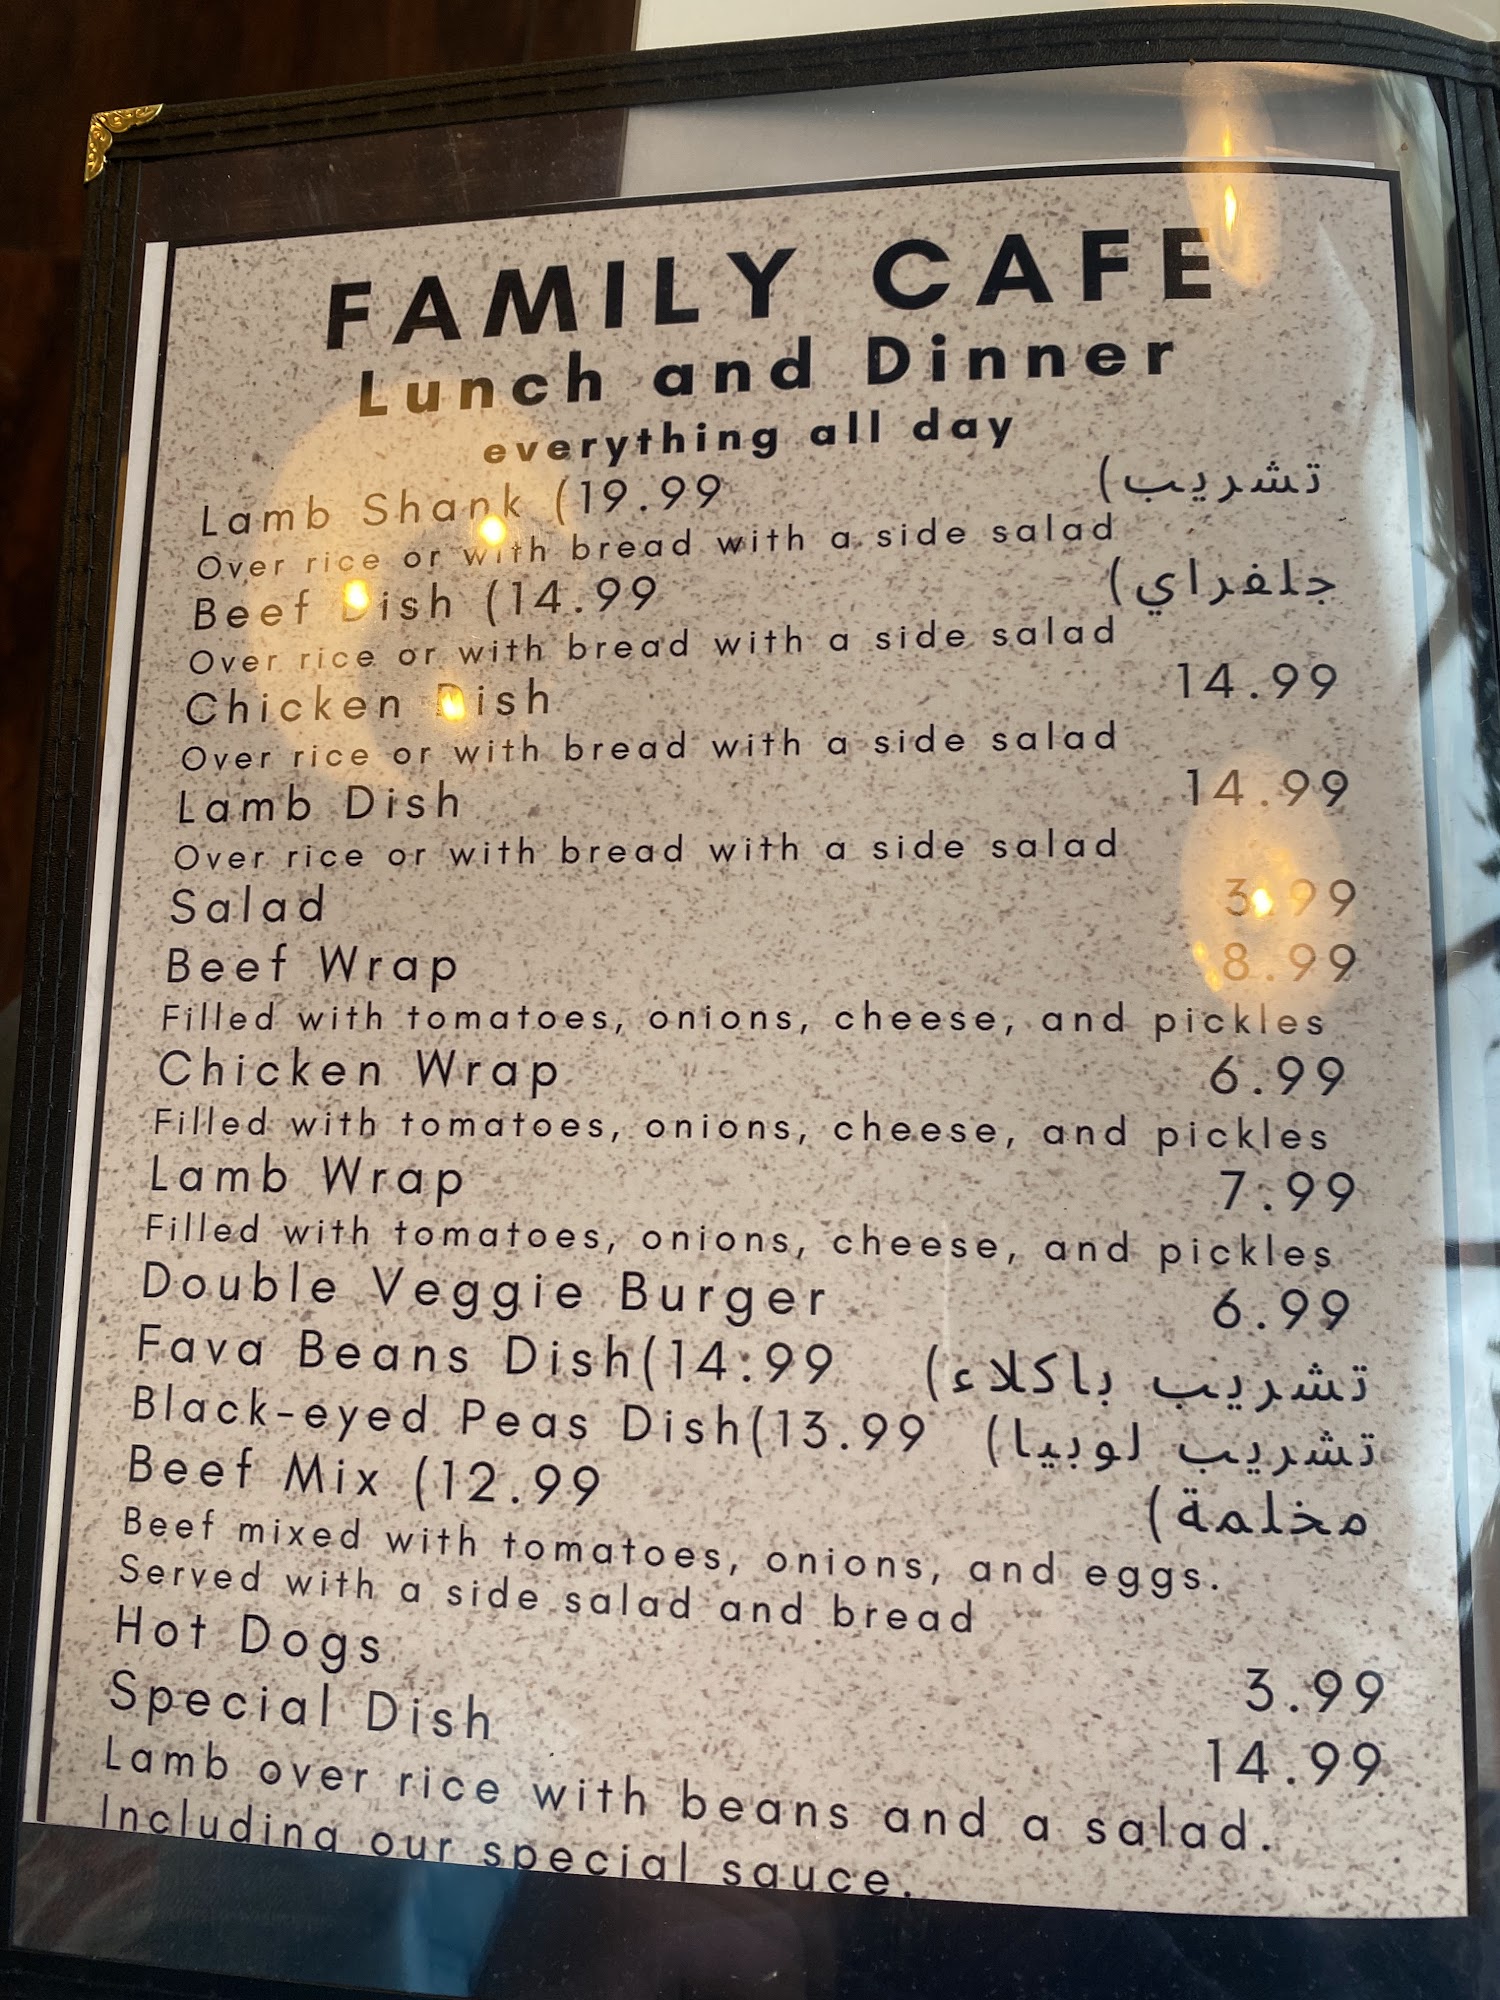 FAMILY CAFE
Lunch and Dinner
everything all day
Lamb Shank (19.99 تشريب)
Over rice or with bread with a side salad
Beef Dish (14.99 جلفراي)
Over rice or with bread with a side salad
Chicken Dish 14.99
Over rice or with bread with a side salad
Lamb Dish 14.99
Over rice or with bread with a side salad
Salad 3.99
Beef Wrap 8.99
Filled with tomatoes, onions, cheese, and pickles
Chicken Wrap 6.99
Filled with tomatoes, onions, cheese, and pickles
Lamb Wrap 7.99
Filled with tomatoes, onions, cheese, and pickles
Double Veggie Burger 6.99
Fava Beans Dish(14.99 تشريب باكلاء)
Black-eyed Peas Dish(13.99 تشريب لوبيا)
Beef Mix (12.99 مخلمة)
Beef mixed with tomatoes, onions, and eggs.
Served with a side salad and bread
Hot Dogs 3.99
Special Dish 14.99
Lamb over rice with beans and a salad.
Including our special sauce.